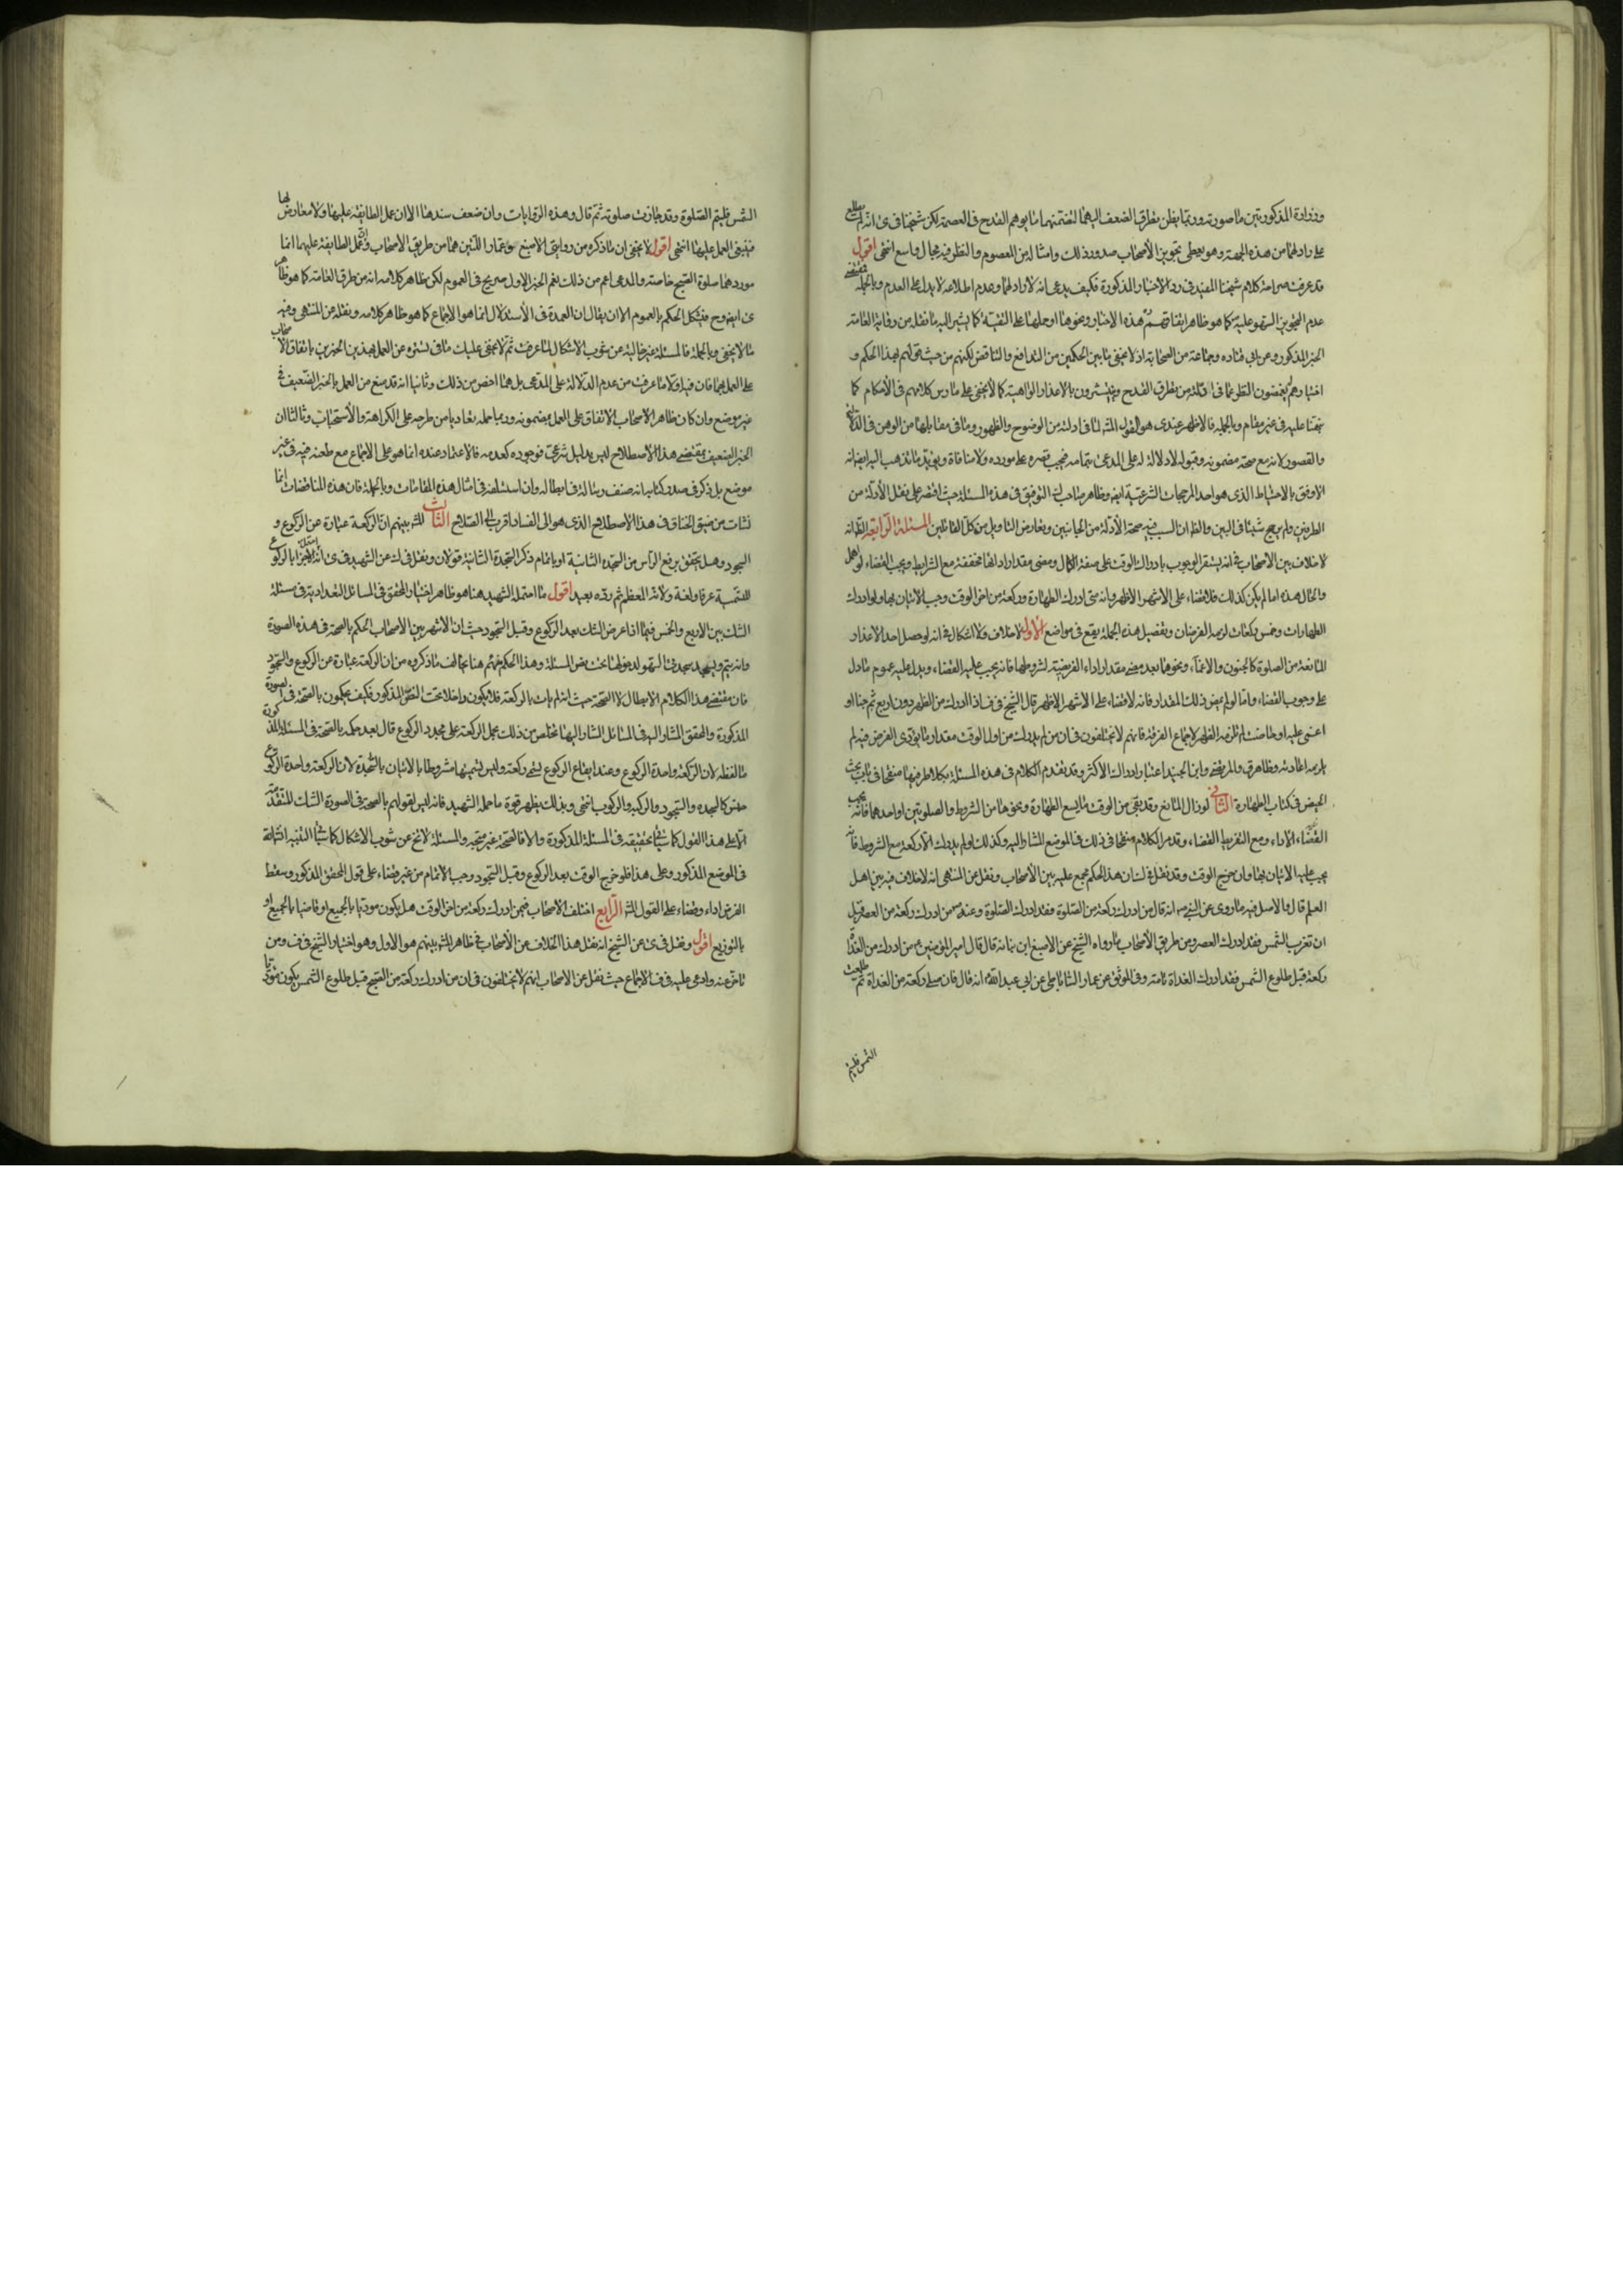 وزرارة المذكورتين ما صورته وربما يظن تطرق الضعف اليهما لتضمنهما ما يوهم القدح في العصمة لكن شيخنا في ى انه لم يطلع
على راد لهما من هذه الجهة وهو يعطى تجويز الأصحاب صدور ذلك وامثاله من المعصوم وللنظر فيه مجال واسع انتهى اقول
قد عرفت صراحة كلام شيخنا المفيد في رد الاخبار المذكورة فكيف يدعى انه لا راد لها وعدم اطلاعه لا يدل على العدم وبالجملة فمقتضى
عدم تجويز السهو عليه كما هو ظاهر اتفاقهم رد هذه الاخبار ونحوها او حملها على التقية كما يشير اليه ما نقله من رواية العامة
الخبر المذكور وعن ابي قتادة وجماعة من الصحابة اذ لا يخفى ما بين الحكمين من التدافع والتناقض لكنهم من حيث قولهم بهذا الحكم و
اختيارهم يغمضون النظر عما في ادلته من تطرق القدح ويتسترون بالاعذار الواهية كما لا يخفى على مارس كلامهم في الأحكام كما
نبهنا عليه في غير مقام وبالجملة فالاظهر عندى هو القول المشهور لما في ادلته من الوضوح والظهور وما في مقابلها من الوهن في الدلالة
والقصور لانه مع صحة مضمونه وقبوله لا دلالة له على المدعى بتمامه فيجب قصره على مورده ولا منافاة ويؤيد ما نذهب اليه ايضا انه
الاوفق بالاحتياط الذى هو احد المرجحات الشرعية ايضا وظاهر صاحب ك التوقف في هذه المسئلة حيث اقتصر على نقل الأدلة من
الطرفين ولم يرجح شيئا في البين والظ ان السبب فيه صحة الأدلة من الجانبين وتعارض التاويل من كل القائلين المسئلة الرابعة الظ انه
لا خلاف بين الاصحاب في انه يستقر الوجوب بادراك الوقت على صفة الكمال ومضى مقدار ادائها مخففة مع الشرايط ويجب القضاء لو اهمل
والحال هذه اما لو لم يكن كذلك فلا قضاء على الاشهر الاظهر وانه متى ادرك الطهارة وركعة من اخر الوقت وجب الاتيان بها ولو ادرك
الطهارات وخمس ركعات لزمه الفرضان وتفصيل هذه الجملة يقع في مواضع الاول لا خلاف ولا اشكال في انه لو حصل احد الاعذار
المانعة من الصلوة كالجنون والاغماء ونحوها بعد مضى مقدار اداء الفريضة بشروطها فانه يجب عليه القضاء ويدل عليه عموم ما دل
على وجوب القضاء واما لو لم يمض ذلك المقدار فانه لا قضاء على الاشهر الاظهر قال الشيخ في ف اذا ادرك من الظهر دون اربع ثم جن او
اغمى عليه او حاضت لم تلزمه الظهر لاجماع الفرقة فانهم لا يختلفون في ان من لم يدرك من اول الوقت مقدار ما يؤدى الفرض فيه لم
يلزمه اعادته وظاهر ق والمرتضى وابن الجنيد اعتبار ادراك الاكثر وقد تقدم الكلام في هذه المسئلة بكلا طرفيها منقحا في باب بحث
الحيض في كتاب الطهارة الثانى لو زال المانع وقد بقى من الوقت ما يسع الطهارة ونحوها من الشروط والصلوتين او احدهما فانه يجب
الاداء ومع التفريط القضاء وقد مر الكلام منقحا في ذلك في الموضع المشار اليه وكذلك لو لم يدرك الا ركعة مع الشروط فانه
يجب عليه الاتيان بها وان خرج الوقت وقد نقل في ك ان هذا الحكم مجمع عليه بين الأصحاب ونقل عن المنتهى انه لا خلاف فيه بين اهل
العلم قال والاصل فيه ما روى عن النبى ص انه قال من ادرك ركعة من الصلوة فقد ادرك الصلوة وعنه ص من ادرك ركعة من العصر قبل
ان تغرب الشمس فقد ادرك العصر ومن طريق الأصحاب ما رواه الشيخ عن الاصبغ ابن نباته قال قال امير المؤمنين ع من ادرك من الغداة
ركعة قبل طلوع الشمس فقد ادرك الغداة تامة وفى الموثق عن عمار الساباطى عن ابي عبد الله ع انه قال فان صلى ركعة من الغداة ثم طلعت
الشمس فليتم
الشمس فليتم الصلوة وقد جازت صلوته ثم قال وهذه الروايات وان ضعف سندها الا ان عمل الطائفة عليها ولا معارض لها
فينبغى العمل عليها انتهى اقول لا يخفى ان ما ذكره من روايتى الاصبغ وعمار اللتين هما من طريق الاصحاب وان عمل الطايفة عليهما انما
موردهما صلوة الصبح خاصة والمدعى اعم من ذلك نعم الخبر الاول صريح في العموم لكن ظاهر كلامه انه من طرق العامة كما هو ظاهر
ى ايضا وح فيشكل الحكم بالعموم الا ان يقال ان العمدة في الأستدلال انما هو الاجماع كما هو ظاهر كلامه ونقله عن المنتهى وفيه
ما لا يخفى وبالجملة فالمسئلة غير خالية من شوب الاشكال لما عرفت ثم لا يخفى عليك ما في تستره عن العمل بهذين الخبرين باتفاق الاصحاب
على العمل بهما فان فيه اولا ما عرفت من عدم الدلالة على المدعى بل هما اخص من ذلك وثانيا انه قد منع من العمل بالخبر الضعيف في
غير موضع وان كان ظاهر الاصحاب الاتفاق على العمل بمضمونه وربما حمله تفاديا من طرحه على الكراهة والأستحباب وثالثا ان
الخبر الضعيف بمقتضى هذا الأصطلاح ليس بدليل شرعى فوجوده كعدمه فالاعتماد عنده انما هو على الاجماع مع طعنه فيه في غير
موضع بل ذكر في صدر كتابه انه صنف رسالة في ابطاله وان استسلفه في امثال هذه المقامات وبالجملة فان هذه المناقضات انما
نشات من ضيق الخناق في هذا الأصطلاح الذى هو الى الفساد اقرب الى الصلاح الثالث المشهور بينهم ان الركعة عبارة عن الركوع و
السجود وهل يتحقق برفع الراس من السجدة الثانية او باتمام ذكر السجدة الثانية قولان ونقل في ك عن الشهيد في ى انه احتمل الاجتزاء بالركوع
للتسمية عرفا ولغة ولانه المعظم ثم رده ببعده اقول ما احتمله الشهيد هنا هو ظاهر اختيار المحقق في المسائل البغدادية في مسئلة
الشك بين الاربع والخمس فيما اذا عرض الشك بعد الركوع وقبل السجود حيث ان الاشهر بين الاصحاب الحكم بالصحة في هذه الصورة
وانه يتم ويسجد سجدتى السهو لدخولها تحت نص المسئلة وهذا الحكم منهم هنا يخالف ما ذكروه من ان الركعة عبارة عن الركوع والسجود
فان مقتضى هذا الكلام الابطال لا الصحة حيث انه لم يات بالركعة فلا يكون داخلا تحت النص المذكور فكيف يحكمون بالصحة في الصورة
المذكورة والمحقق المشار اليه في المسائل المشار اليها تخلص من ذلك بحمل الركعة على مجرد الركوع قال بعد حكمه بالصحة في المسئلة المذكورة
ما لفظه لان الركعة واحدة الركوع وعند ايقاع الركوع يسمى ركعة وليس تسميتها مشروطا بالاتيان بالسجدة لان الركعة واحدة الركوع
جنس كالسجدة والسجود والركبة والركوب انتهى وبذلك يظهر قوة ما حمله الشهيد فانه ليس لقولهم بالصحة في الصورة الشك المتقدمة
الا على هذا القول كما سيأتى تحقيقه في المسئلة المذكورة والا فالصحة غير متجهة والمسئلة لا تخ عن شوب الاشكال كما سيأتى التنبيه انش تعالى
في الموضع المذكور وعلى هذا فلو خرج الوقت بعد الركوع وقبل السجود وجب الاتمام من غير قضاء على قول المحقق المذكور وسقط
الفرض اداء وقضاء على القول المشهور الرابع اختلف الاصحاب فيمن ادرك ركعة من اخر الوقت هل يكون مؤديا بالجميع او قاضيا بالجميع او
بالتوزيع اقول ونقل في ى عن الشيخ انه نقل هذا الخلاف عن الأصحاب في ظاهر المشهور بينهم هو الاول وهو اختيار الشيخ في ف ومن
تاخر عنه وادعى عليه في ف الاجماع حيث نقل عن الاصحاب انهم لا يختلفون في ان من ادرك ركعة من الصبح قبل طلوع الشمس يكون مؤديا